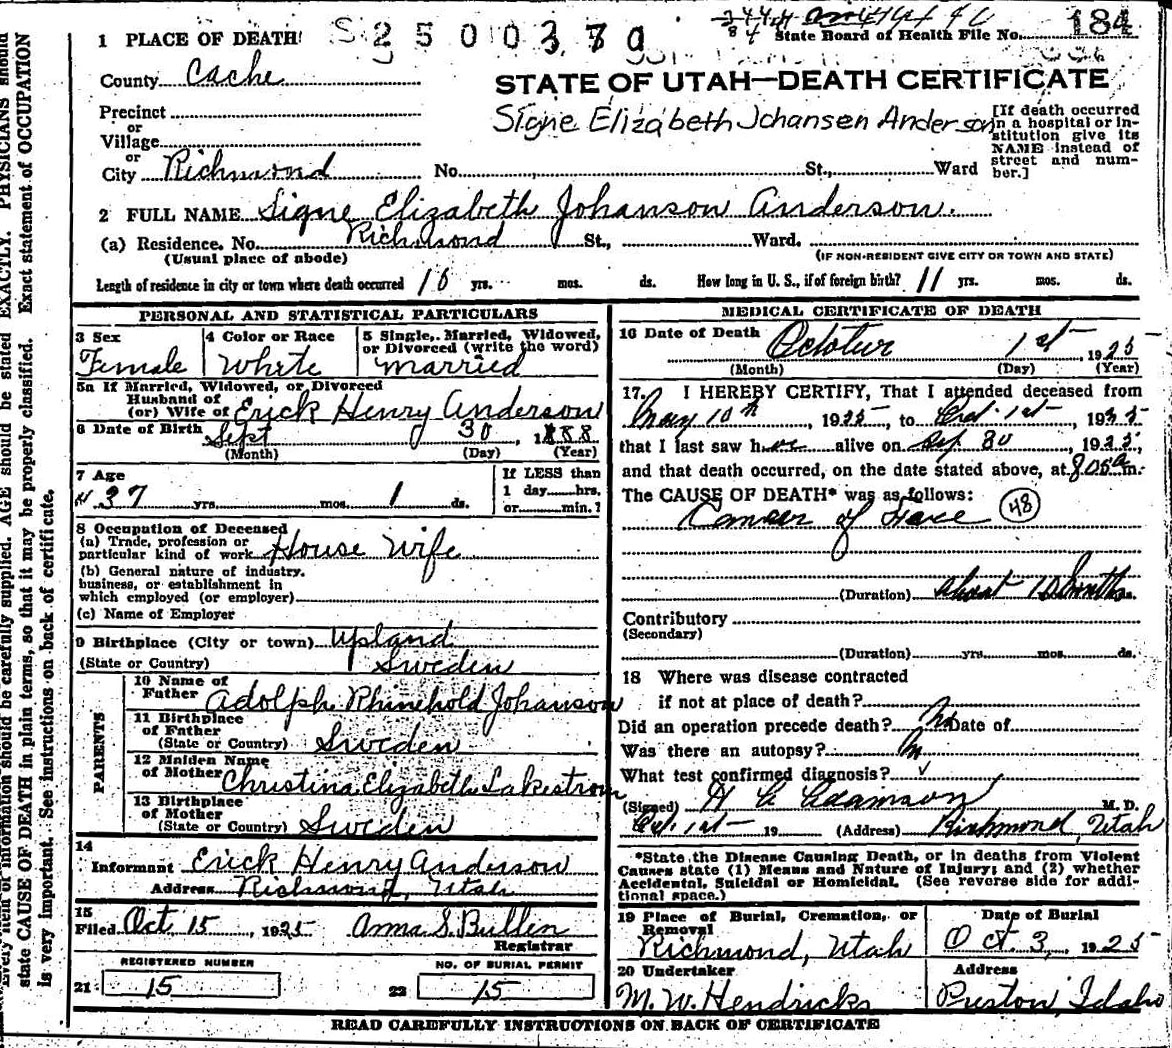 S 2 5 0 0 3 7 9
184
State Board of Health File No.
1 PLACE OF DEATH
County Cache
STATE OF UTAH—DEATH CERTIFICATE
Precinct
or
Village
or
City Richmond No. St., Ward
Signe Elizabeth Johansen Anderson
[If death occurred
in a hospital or in-
stitution give its
NAME instead of
street and num-
ber.]
2 FULL NAME Signe Elizabeth Johanson Anderson.
(a) Residence. No. Richmond St., Ward.
(Usual place of abode) (IF NON-RESIDENT GIVE CITY OR TOWN AND STATE)
Length of residence in city or town where death occurred 10 yrs. mos. ds. How long in U. S., if of foreign birth? 11 yrs. mos. ds.
PERSONAL AND STATISTICAL PARTICULARS
3 Sex
Female
4 Color or Race
White
5 Single, Married, Widowed,
or Divorced (write the word)
Married
5a If Married, Widowed, or Divorced
Husband of
(or) Wife of Erick Henry Anderson
6 Date of Birth Sept 30, 1888
(Month) (Day) (Year)
7 Age
37 yrs. mos. 1 ds.
If LESS than
1 day hrs.
or min.?
8 Occupation of Deceased
(a) Trade, profession or
particular kind of work House Wife
(b) General nature of industry.
business, or establishment in
which employed (or employer)
(c) Name of Employer
9 Birthplace (City or town) Upland
(State or Country) Sweden
PARENTS
10 Name of
Father Adolph Rhinehold Johanson
11 Birthplace
of Father
(State or Country) Sweden
12 Maiden Name
of Mother Christina Elizabeth Lakestrom
13 Birthplace
of Mother
(State or Country) Sweden
14
Informant Erick Henry Anderson
Address Richmond, Utah
15
Filed Oct 15, 1925 Anna S. Bullen
Registrar
REGISTERED NUMBER
21 15
NO. OF BURIAL PERMIT
22 15
MEDICAL CERTIFICATE OF DEATH
16 Date of Death October 1st, 1925
(Month) (Day) (Year)
17. I HEREBY CERTIFY, That I attended deceased from
May 10th, 1925, to Oct. 1st, 1925
that I last saw her alive on Sep 30, 1925,
and that death occurred, on the date stated above, at 8 05 a m.
The CAUSE OF DEATH* was as follows:
Cancer of Face 48
(Duration) about 10 months
Contributory
(Secondary)
(Duration) yrs. mos. ds.
18 Where was disease contracted
if not at place of death?
Did an operation precede death? No Date of
Was there an autopsy? No
What test confirmed diagnosis?
(Signed) Adamson M. D.
Oct. 1st 19 (Address) Richmond, Utah
*State the Disease Causing Death, or in deaths from Violent
Causes state (1) Means and Nature of Injury; and (2) whether
Accidental, Suicidal or Homicidal. (See reverse side for addi-
tional space.)
19 Place of Burial, Cremation, or
Removal
Richmond, Utah
Date of Burial
Oct. 3, 1925
20 Undertaker
M. W. Hendricks
Address
Preston, Idaho
READ CAREFULLY INSTRUCTIONS ON BACK OF CERTIFICATE
Every item of information should be carefully supplied. AGE should be stated EXACTLY. PHYSICIANS should
state CAUSE OF DEATH in plain terms, so that it may be properly classified. Exact statement of OCCUPATION
is very important. See instructions on back of certificate.